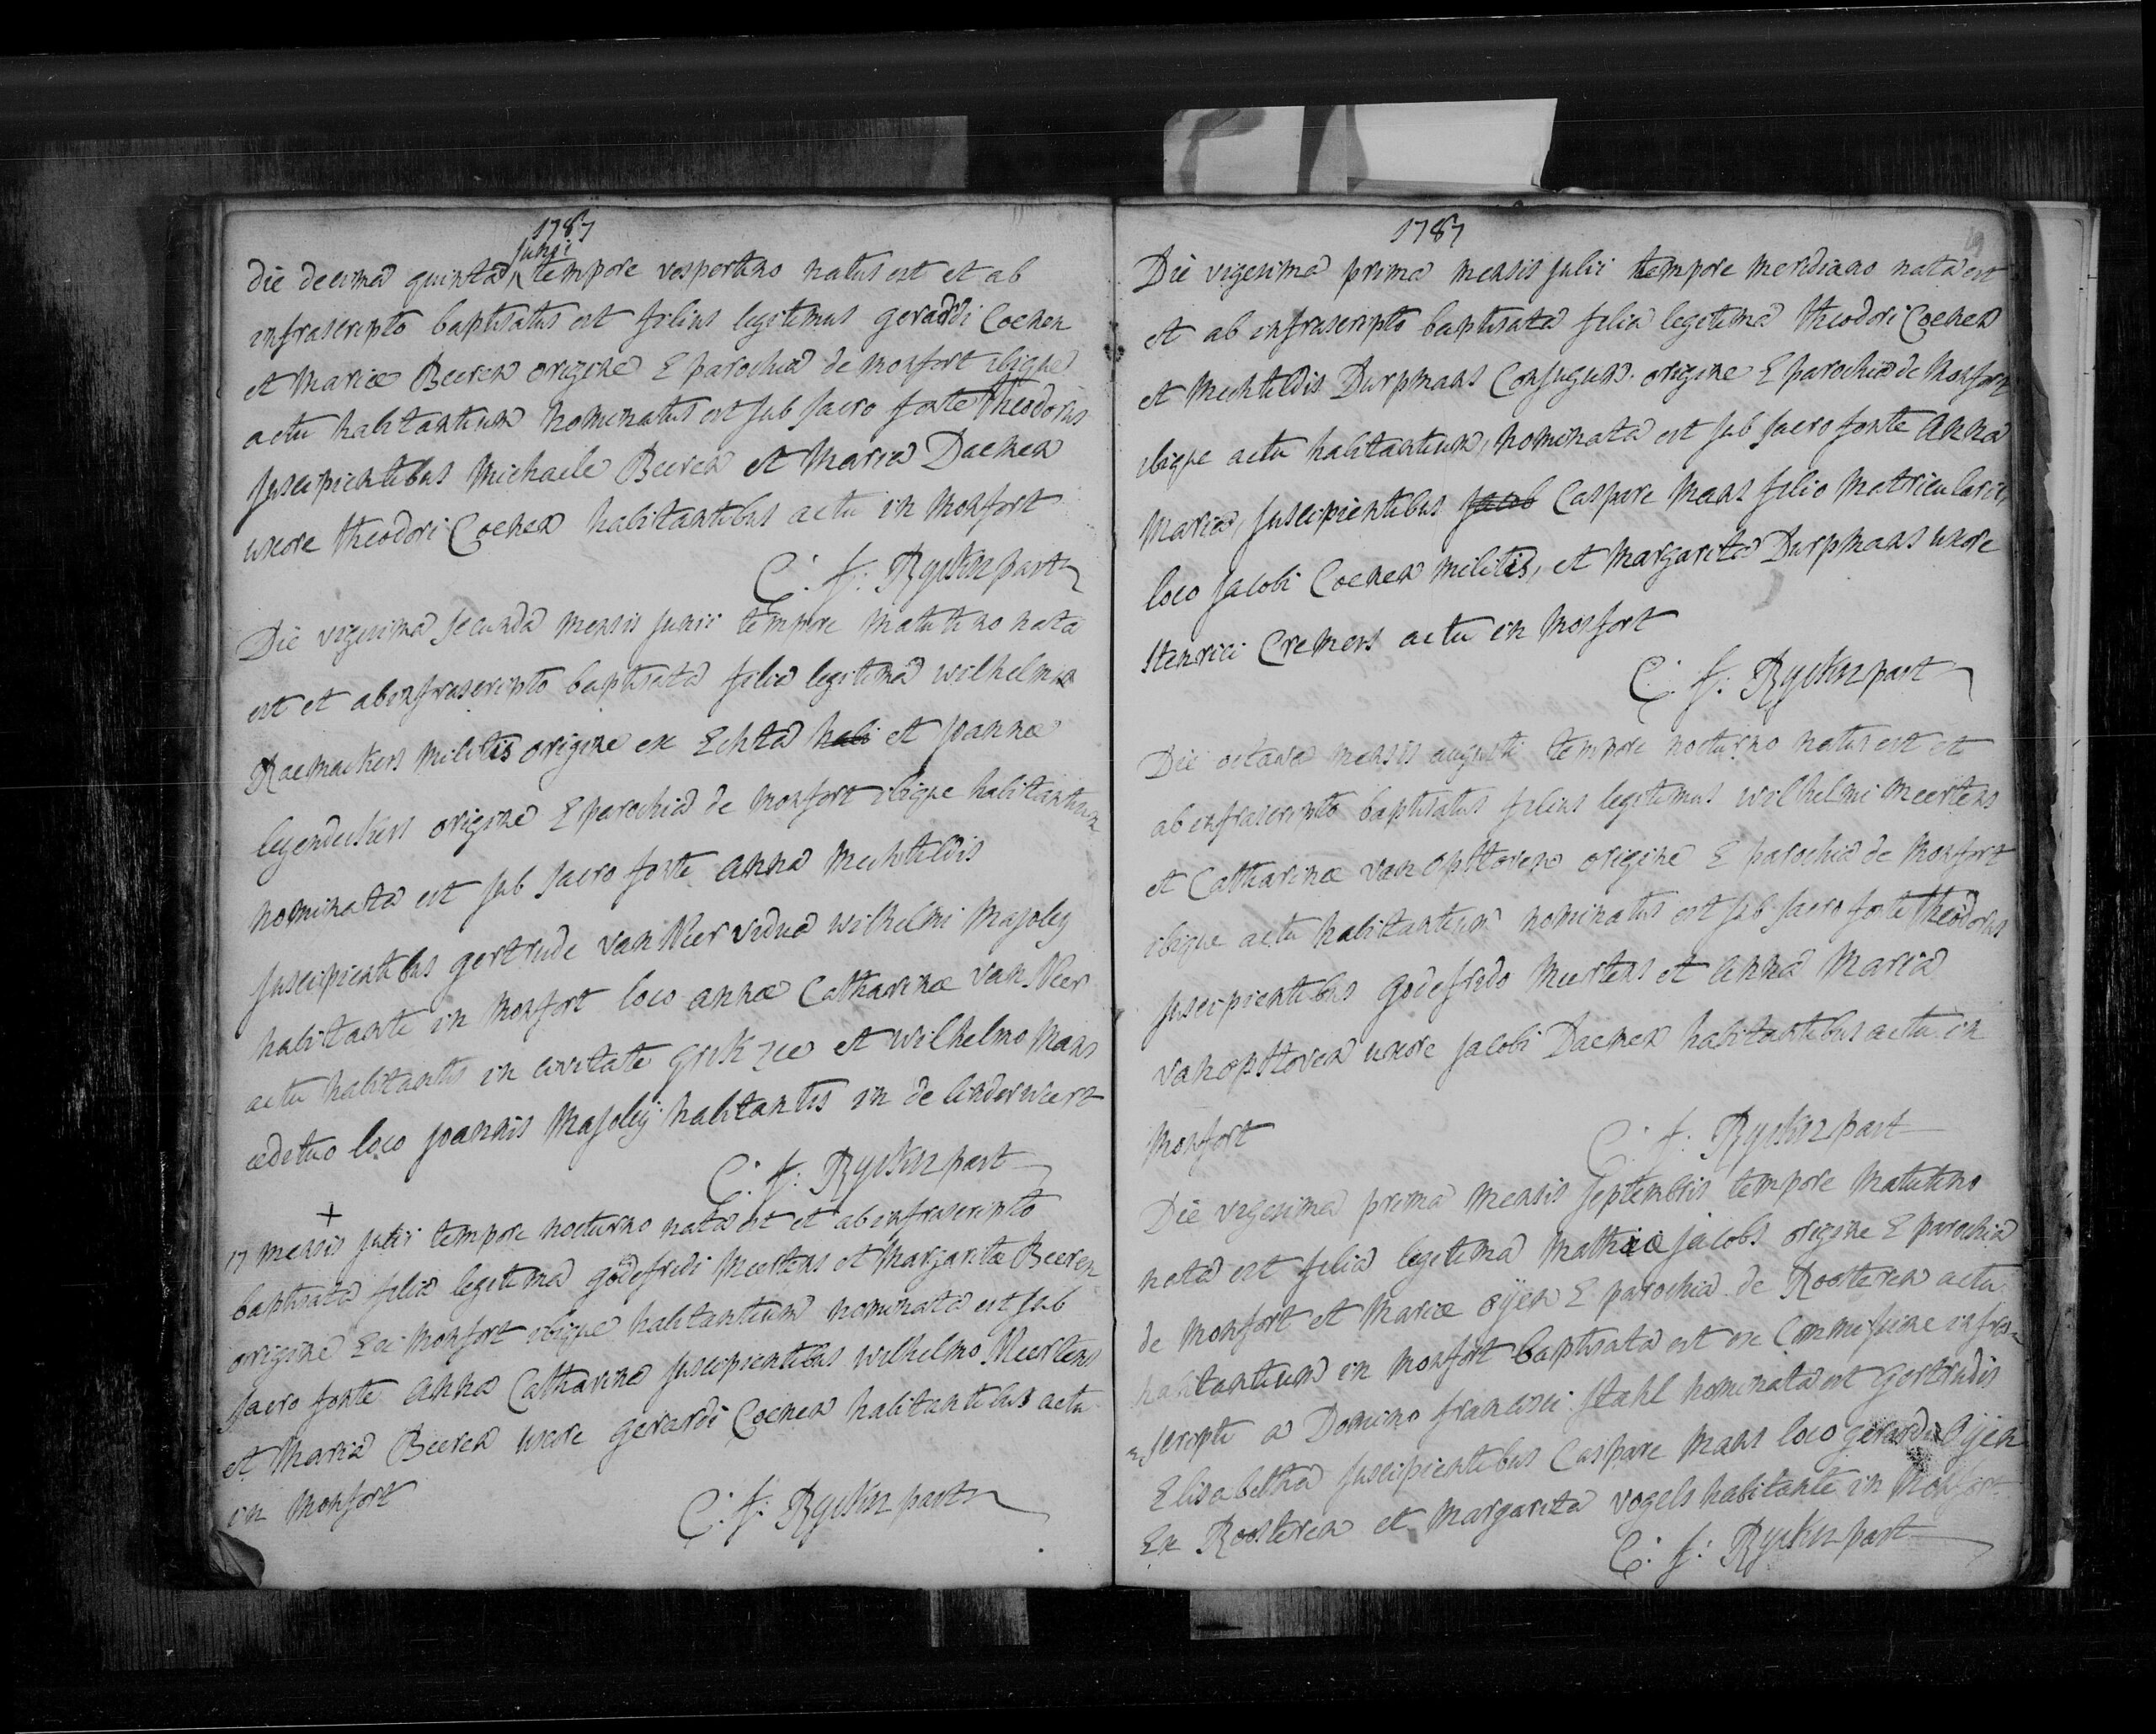 1787
junii
die decima quinta tempore vespertino natus est et ab
infrascripto baptisatus est filius legitimus gerardi Coenen
et Mariæ Beeren origine E parochia de Monfort ibique
actu habitantium nominatus est sub sacro fonte Theodorus
suscipientibus Michaele Beeren et Maria Daemen
uxore Theodori Coenen habitantibus actu in Monfort
C: f: past
Die vigesima secunda mensis junii tempore matutino nata
est et ab infrascripto baptisata filia legitima wilhelmi
Raemackers militis origine ex Echta habi et joannæ
legendeckers origine E parochia de Monfort ibique habitantium
nominata est sub sacro fonte Anna Mechtildis
suscipientibus gertrude van Neer vidua wilhelmi Majoleij
habitante in Monfort loco annæ Catharinæ van Neer
actu habitantis in civitate et wilhelmo Mans
ædituo loco joannis Majoleij habitantis in de linderweert
C: f: past
17 mensis julii tempore nocturno nata est et ab infrascripto
baptisata filia legitima godefridi Meertens et Margaritæ Beeren
origine Ex Monfort ibique habitantium nominata est sub
sacro fonte Anna Catharina suscipientibus wilhelmo Meertens
et Maria Beeren uxore gerardi Coenen habitantibus actu
in Monfort
C: f: past
1787
Die vigesima prima mensis julii tempore meridiano nata est
et ab infrascripto baptisata filia legitima theodori Coenen
et Mechtildis Durpmans Conjugum origine E parochia de Monfort
ibique actu habitantium, nominata est sub sacro fonte Anna
Maria, suscipientibus jacob Caspare Mans filio Matricularii,
loco jacobi Coenen militis, et Margarita Durpmans uxore
Henrici Cremers actu in Monfort
C: f: past
Die octava mensis augusti tempore nocturno natus est et
ab infrascripto baptisatus filius legitimus wilhelmi Meertens
et Catharinæ van opHoven origine E parochia de Monfort
ibique actu habitantium nominatus est sub sacro fonte Theodorus
suscipientibus godefrido Meertens et Anna Maria
van opHoven uxore jacobi Daemen habitantibus actu in
Monfort
C: f: past
Die vigesima prima mensis septembris tempore matutino
nata est filia legitima Mathiæ jacobs origine E parochia
de Monfort et Mariæ oijen E parochia de Roosteren actu
habitantium in Monfort baptisata est ex Commissione infra=
=scripti a Domino francisci Stahl nominata est gertrudis
Elisabetha suscipientibus Caspare Mans loco gerardi Oijen
Ex Roosteren et Margarita vogels habitante in Monfort
C: f: past